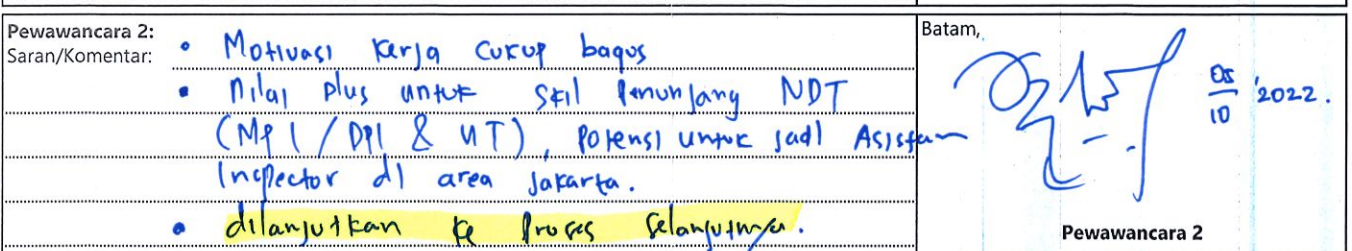 Pewawancara 2:
Saran/Komentar:
• Motivasi kerja cukup bagus
• nilai plus untuk skil penunjang NDT
(MPI / DPI & UT), potensi untuk jadi Asistam
Inspector di area Jakarta.
• dilanjutkan ke proses selanjutnya.
Batam,
05
10
'2022.
Pewawancara 2